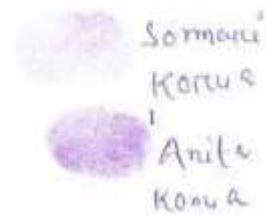 Somari
Konua
Anita
Konua